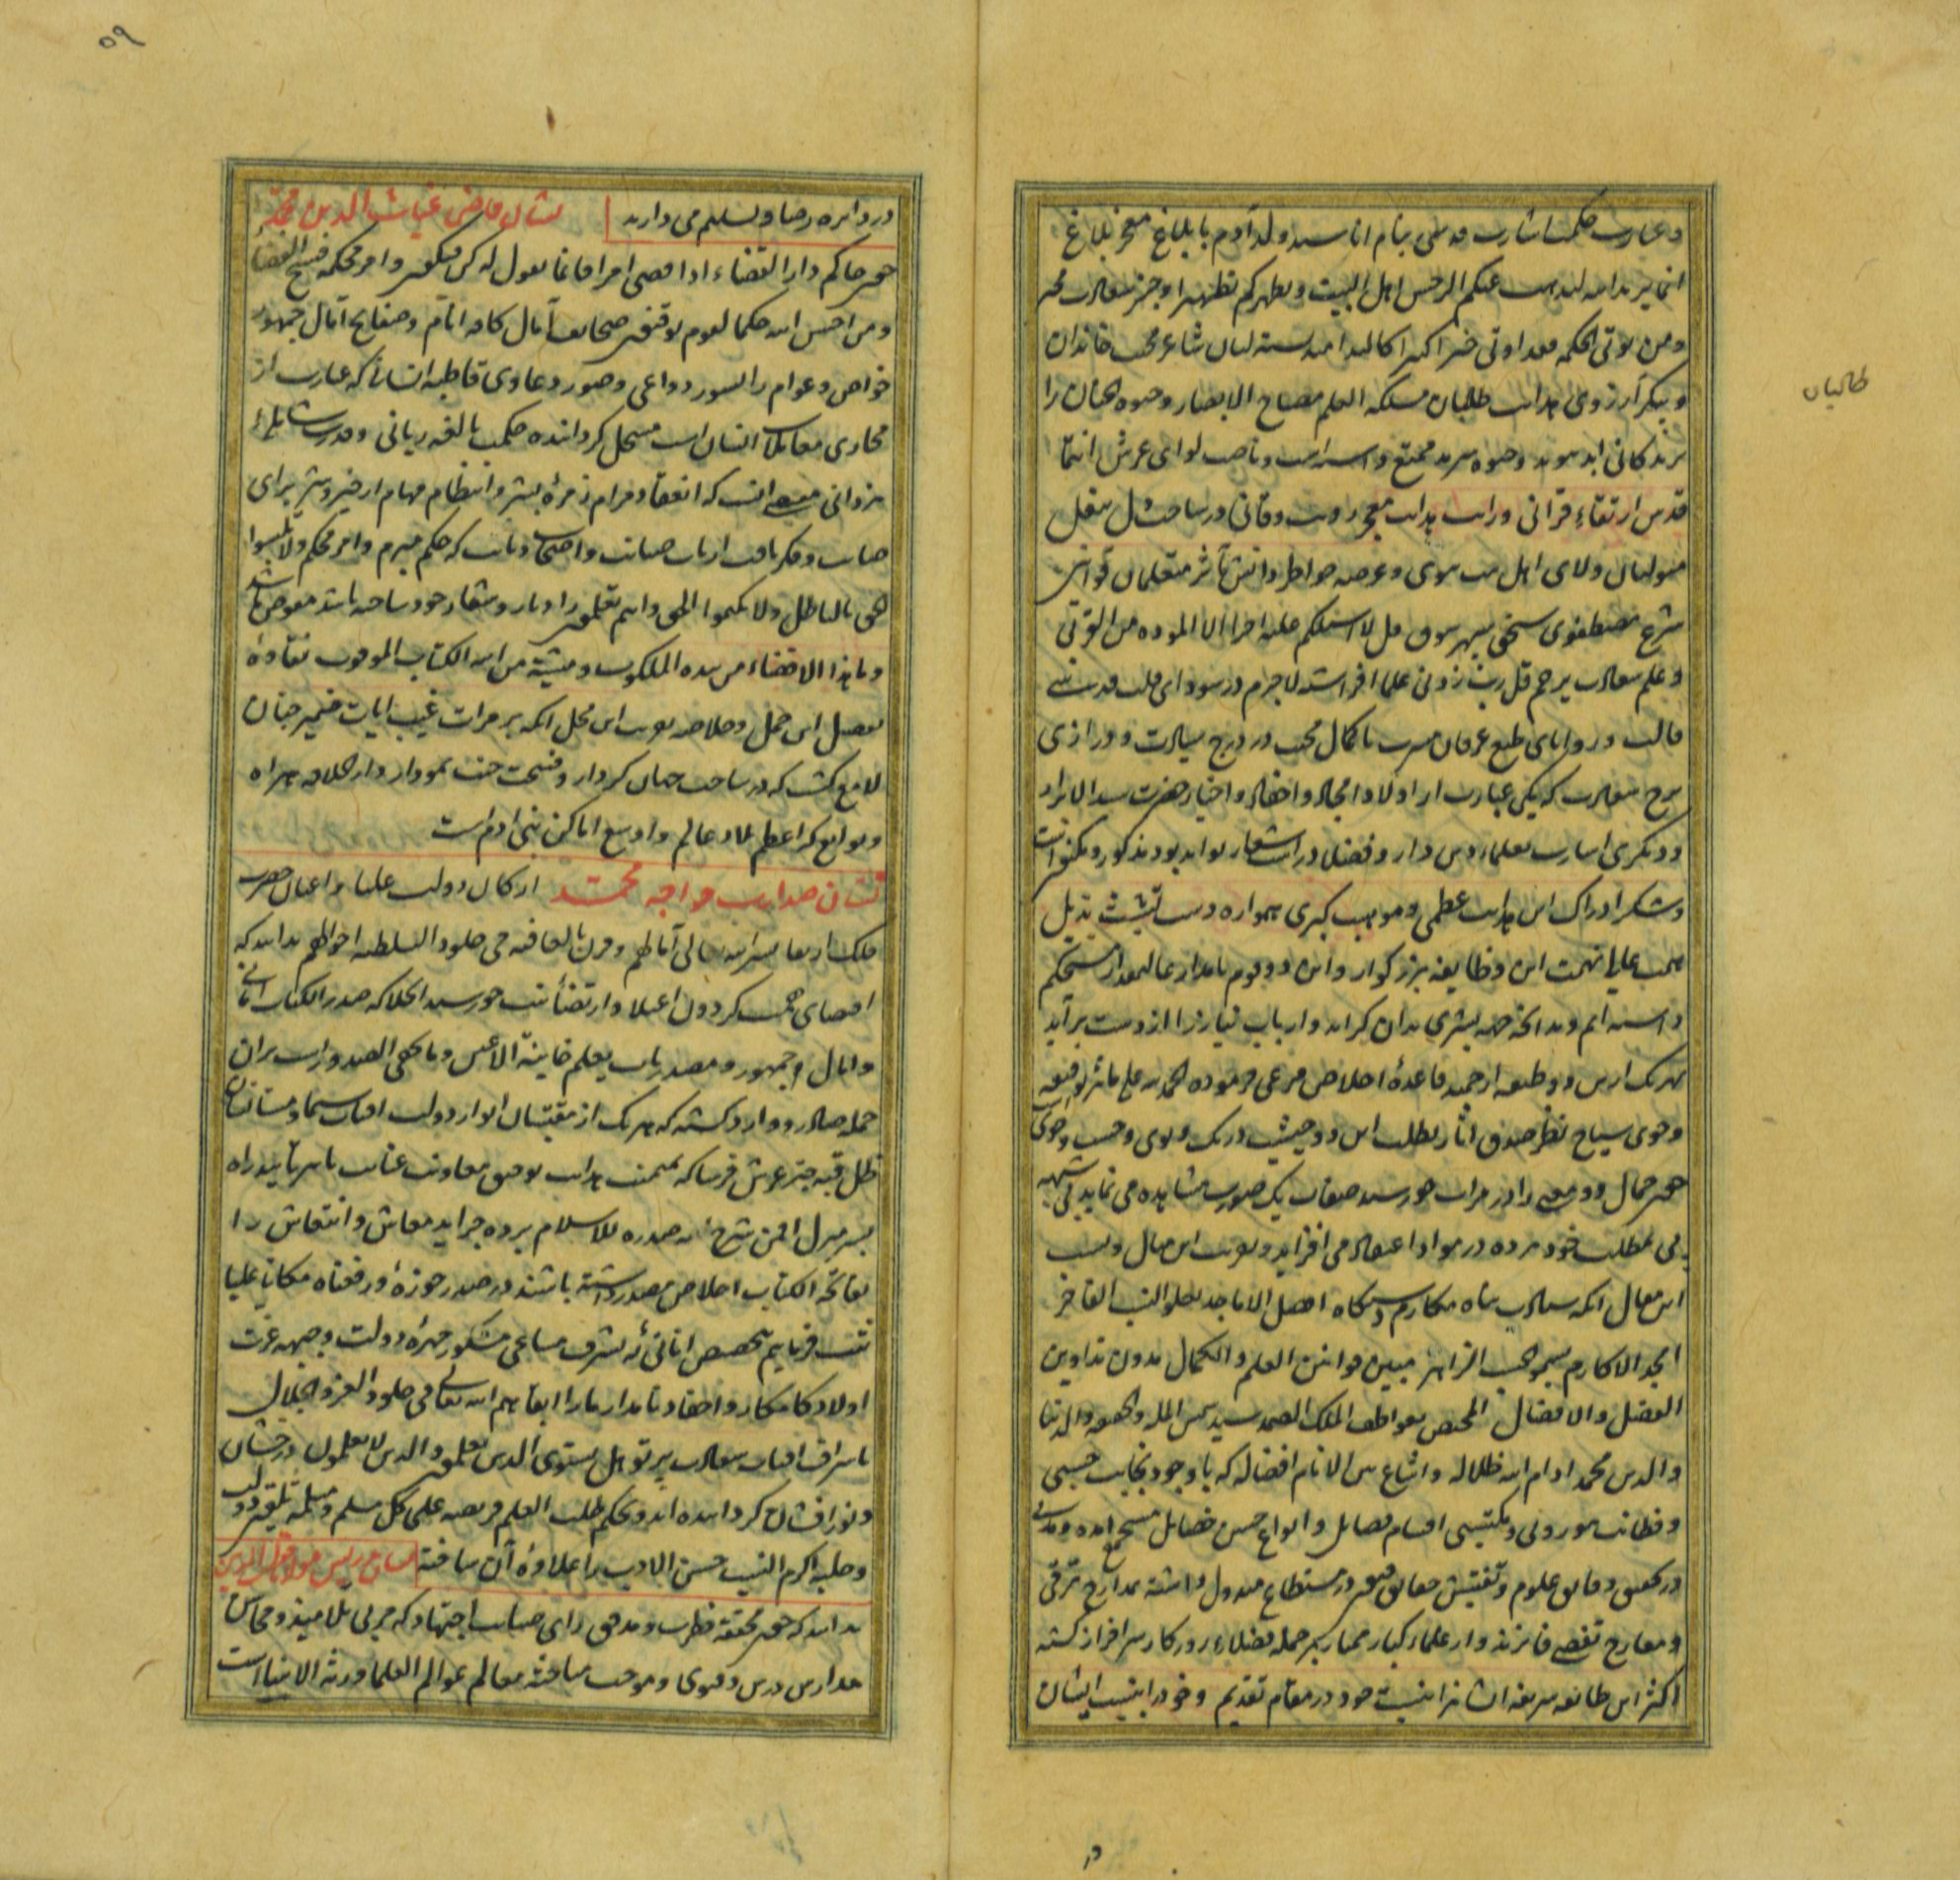 طالبان
و عبارت حکمت اشارت قدسی بنام انا سید ولد آدم با بلاغ معجز بلاغ
انما یرید الله لیذهب عنکم الرجس اهل البیت و یطهرکم تطهیرا و جبر سعادت
و من یؤتی الحکمه فقد اوتی خیرا کثیرا کالبد امید بسته لبان شاعر محب خاندان
و پیکر آرزوی هدایت طلبان مسکه العلم مصباح الابصار و حیوه الجنان را
بزندگانی ابد پیوند و حیوه سرمد ممتع داسته است و ناصب لوای عرش انتما
قدس ارتقاء قرآنی و رایت هدایت معجز رویت فرقانی در ساحت دل
متولیان ولای اهل بیت نبوی و عرصه خواطر دانش مآثر متعلمان قوانین
شرع مصطفوی سنجق سپهر سوق قل لا اسئلکم علیه اجرا الا الموده فی القربی
و علم سعادت پرچم قل رب زدنی علما افراشته لاجرم در سودای قلب قدسی
قالب و زوایای طبع عرفان مشرب ما کمال محبت در درج سیادت و دراری
برج سعادت که یکی عبارت از اولاد امجاد و احفاد و اخیار حضرت سید الابرار
و دیگری اشارت بعلماء دین دار و فضلاء درایت شعار تواند بود مذکور و مکنون است
و شکر ادراک این هدایت عظمی و موهبت کبری همواره دست تشبث بذیل
همت عالی نهمت این و ظایفه بزرگوار و این دودوم نامدار عالیمقدار مستحکم
داشته ایم و بدانچه جهه بشری بدان گراید و ارباب نیاز را از دست برآید
بهر یک ازین دو طبقه ارجمند قاعدهٔ اخلاص مرعی فرموده الحمد لله علی مآثر توفیقه
و چون سیاح نظر صدق آثار بطلب این دو جیش در تک و پوی و جست و جوی
چون جمال دو معنی را در مرآت خورشید صفات یک صورت مشاهده می نماید بی شبهه
پی بمطلب خود برده در مواد اعتقاد می افزاید و صورت این مثال و نسب
این مقال آنکه سیادت پناه مکارم دستگاه افضل الاماجد بعلو النسب الفاخر
امجد الاکارم بسمو الحسب الزاهر مبین قوانین العلم و الکمال مدون تداوین
الفضل و الافضال المختص بعواطف الملک الصمد سید شمس المله والحقیقه والدنیا
والدین محمد ادام الله ظلاله و اشاع بین الانام افضاله که با وجود نجابت حسبی
و فطانت موروثی و مکتسبی اقسام فضایل و انواع حسن خصایل مستجمع آمده و مدتی
در تحقیق دقایق علوم و تفتیش حقایق فنون در مستطاع مبذول داشته بمدارج ترقی
و معارج تقصی فایز شده و از علماء کبار ممتاز بر جمله فضلاء روزگار سرافراز گشته
اکثر این طایفه شریفه ایشانرا بنسبت خود در مقام تقدیم و خود را بنسبت ایشان
در
۵۹
در دایره رضا و تسلیم می دارند نشان قاضی غیاث الدین محمد
چون حاکم دار القضاء اذا قضی امرا فانما یقول له کن فیکون و امر محکمه فسیح الفضاء
و من احسن من الله حکما لقوم یوقنون صحایف آمال کافه انام و صفایح آمال جمهور
خواص و عوام را بسور دواعی و صور دعاوی قاطبه انسانی که عبارت از
مجاری معاملات انسان است مسجل گردانیده حکمت بالغه ربانی و قدرت شامله
یزدانی مقتضی آنست که انعقاد مرام زمرهٔ بشر و انتظام مهام از خیر و شر برای
صایب و فکر ثاقب ارباب صیانت و اصحاب دیانت که حکم مبرم و امر محکم ولا تلبسوا
الحق بالباطل ولا تکتموا الحق و انتم تعلمون را دثار و شعار خود ساخته باشد مفوض باشد
و ما هذا الاقتضاء من بیده الملکوت و مشیة من الله الکتاب الموقوت نقاوهٔ
تفصیل این جمل و خلاصه صورت این محل آنکه بر مرآت غیب آیات ضمیر جنان
لامع گشت که در ساحت جنان کردار و فسحت جنت نمودار دار الخلافه هراه
و توابع که اعظم بلاد عالم و اوسع اماکن بنی آدم است
نشان صدارت خواجه محمد ارکان دولت علیا و اعیان حضرت
فلک ارتفاع یسر الله تعالی آمالهم و قرن بالعافیه فی خلود السلطنه احوالهم بدانند که
اقتضای همت گردون اعتلا و ارتضاء نیت خورشید انجلا که صدر الکتاب امانی
و آمال جمهور و مصدر بآیات یعلم خاینة الاعین و ما تخفی الصدور است بران
جمله صادر و وارد گشته که هر یک از مقتبسان انوار دولت آفتاب سیما و مستسعدان
ظل قبه چتر عرش فرسا که بمیمنت هدایت توفیق معاونت عنایت ما سرتابیده راه
بسر منزل افمن شرح الله صدره للاسلام برده جراید معاش و انتعاش را
بفاتحه الکتاب اخلاص مصدر داشته باشند در صدر حوزهٔ و رفعناه مکانا علیا
تثبت فرماییم بتخصیص آنانی که بشرف مساعی مشکور چهرهٔ دولت و جبهه عزت
اولاد کامکار و احفاد نامدار ما را ابقاهم الله تعالی فی خلود العز و الجلال
باشراق آفتاب سعادت پرتو هل یستوی الذین یعلمون والذین لا یعلمون درخشان
و نورافشان گردانیده اند و بحکم طلب العلم فریضه علی کل مسلم و مسلمه
و حلیه اکرم النسب حسن الادب را علاوهٔ آن ساخته
بدانند که چون محققه فطرت و مدقق رای صایب اجتهاد که مربی تلامیذ و محاسن
مدارس درس و فتوی و موجب مباحثه معالم عوالم العلما ورثة الانبیا است